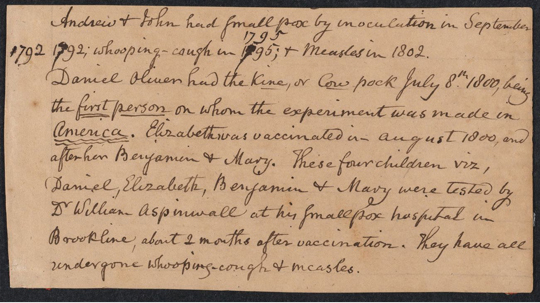 Andrew & John had small pox by inoculation in September
1795
1792 1792; whooping-cough in 1795; & Measles in 1802.
Daniel Oliver had the Kine, or Cow pock July 8th. 1800, being
the first person on whom the experiment was made in
America. Elizabeth was vaccinated in august 1800, and
after her Benjamin & Mary. These four children viz,
Daniel, Elizabeth, Benjamin & Mary were tested by
Dr William Aspinwall at his smallpox hospital in
Brookline, about 2 months after vaccination. They have all
undergone whooping-cough & measles.